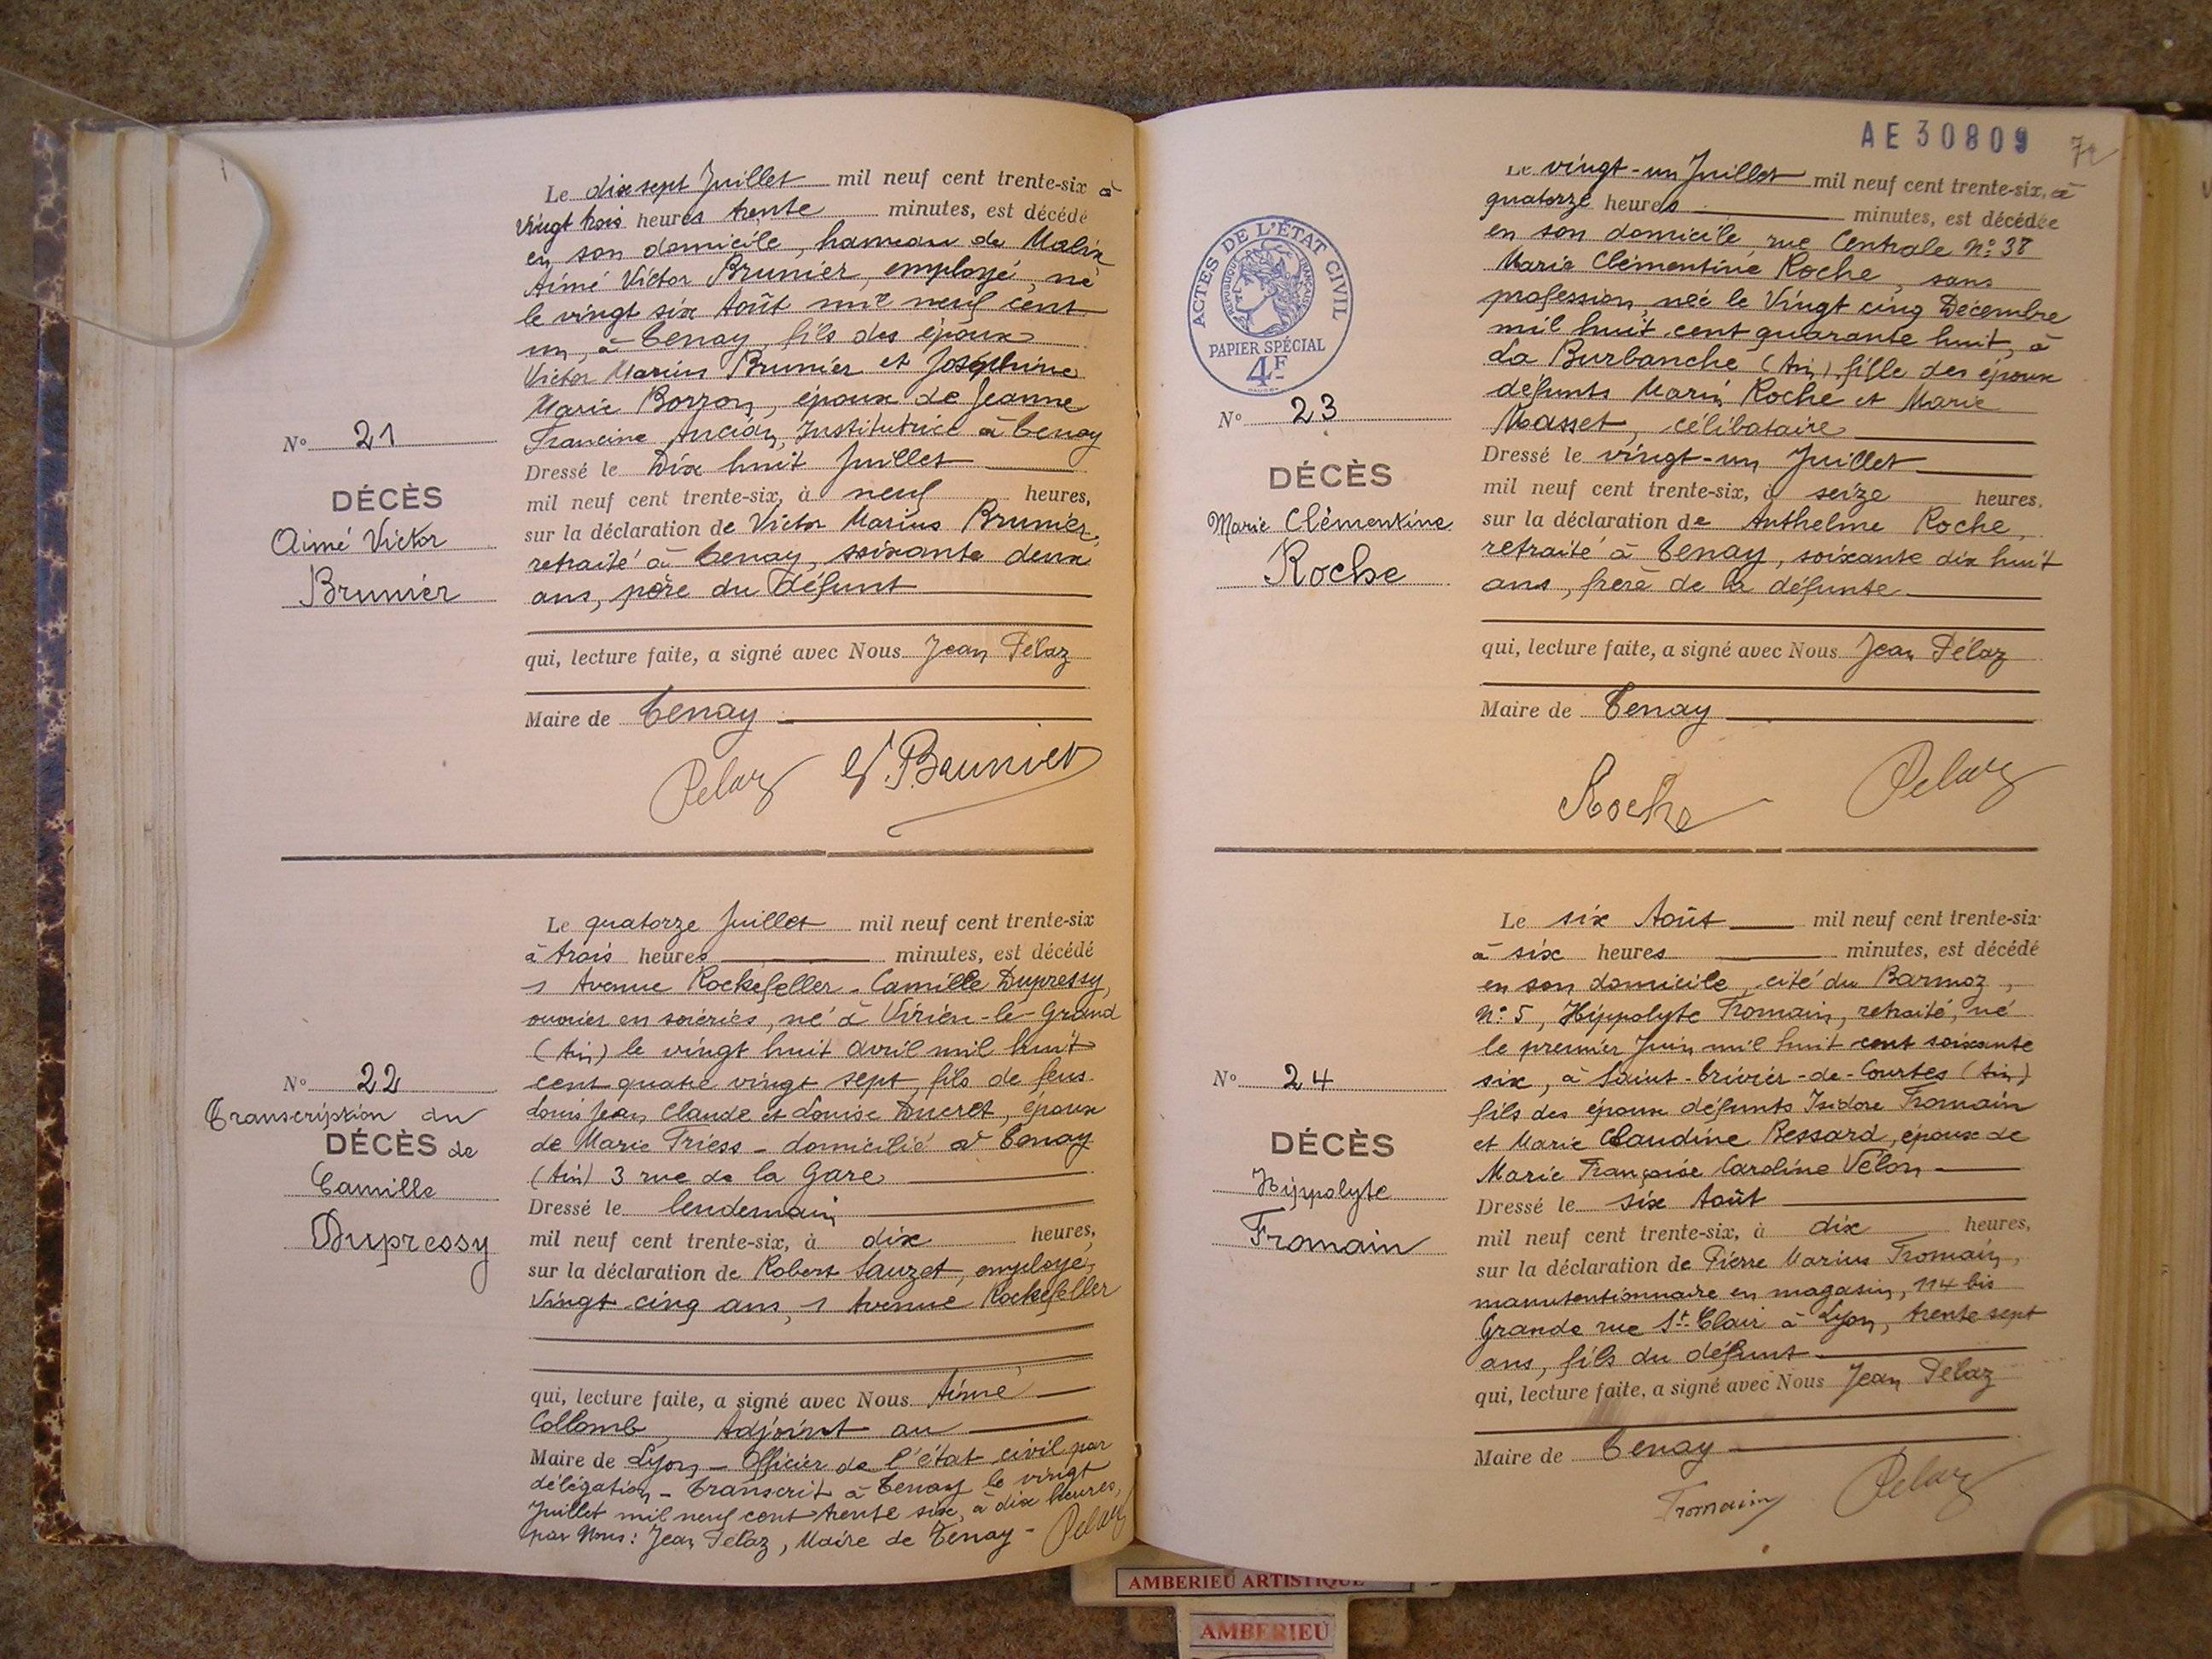 Le dix sept Juillet mil neuf cent trente-six à
vingt trois heures trente minutes, est décédé
en son domicile, hameau de Malix
Aimé Victor Brunier, employé, né
le vingt six Août mil neuf cent
un, à Tenay, fils des époux
Victor Marius Brunier et Joséphine
Marie Borron, époux de Jeanne
Francine Ancian, Institutrice à Tenay
N° 21
DÉCÈS
Aimé Victor
Brunier
Dressé le Dix huit Juillet
mil neuf cent trente-six, à neuf heures,
sur la déclaration de Victor Marius Brunier,
retraité à Tenay, soixante deux
ans, père du défunt
qui, lecture faite, a signé avec Nous Jean Pélaz
Maire de Tenay
Pelaz V. Brunier
Le quatorze Juillet mil neuf cent trente-six
à trois heures minutes, est décédé
1 Avenue Rockefeller - Camille Dupressy,
ouvrier en soieries, né à Virieu-le-Grand
(Ain) le vingt huit avril mil huit
cent quatre vingt sept, fils de feus
Louis Jean Claude et Louise Ducret, époux
de Marie Friess - domicilié à Tenay
(Ain) 3 rue de la Gare
N° 22
Transcription du
DÉCÈS de
Camille
Dupressy
Dressé le lendemain
mil neuf cent trente-six, à dix heures,
sur la déclaration de Robert Sauzet, employé,
vingt cinq ans, 1 Avenue Rockefeller
qui, lecture faite, a signé avec Nous Aimé
Collomb, Adjoint au
Maire de Lyon - Officier de l'état civil par
délégation - Transcrit à Tenay le vingt
Juillet mil neuf cent trente six, à dix heures,
par Nous: Jean Pélaz, Maire de Tenay - Pelaz
AE 30809
72
Le vingt-un Juillet mil neuf cent trente-six, à
quatorze heures minutes, est décédée
en son domicile rue Centrale N° 38
Marie Clémentine Roche, sans
profession, née le Vingt cinq Décembre
mil huit cent quarante huit, à
La Burbanche (Ain), fille des époux
défunts Marin Roche et Marie
Masset, célibataire
ACTES DE L'ÉTAT CIVIL
RÉPUBLIQUE FRANÇAISE
PAPIER SPÉCIAL
4F
N° 23
DÉCÈS
Marie Clémentine
Roche
Dressé le vingt-un Juillet
mil neuf cent trente-six, à seize heures,
sur la déclaration de Anthelme Roche,
retraité à Tenay, soixante dix huit
ans, frère de la défunte
qui, lecture faite, a signé avec Nous Jean Pélaz
Maire de Tenay
Roche Pelaz
Le six Août mil neuf cent trente-six
à six heures minutes, est décédé
en son domicile, cité du Barmoz,
N° 5, Hippolyte Fromain, retraité, né
le premier Juin mil huit cent soixante
six, à Saint-Trivier-de-Courtes (Ain)
fils des époux défunts Isidore Fromain
et Marie Claudine Bessard, époux de
Marie Françoise Caroline Vélon
N° 24
DÉCÈS
Hippolyte
Fromain
Dressé le six Août
mil neuf cent trente-six, à dix heures,
sur la déclaration de Pierre Marius Fromain,
manutentionnaire en magasin, 114 bis
Grande rue St. Clair à Lyon, trente sept
ans, fils du défunt
qui, lecture faite, a signé avec Nous Jean Pélaz
Maire de Tenay
Fromain Pelaz
AMBERIEU ARTISTIQUE
AMBERIEU